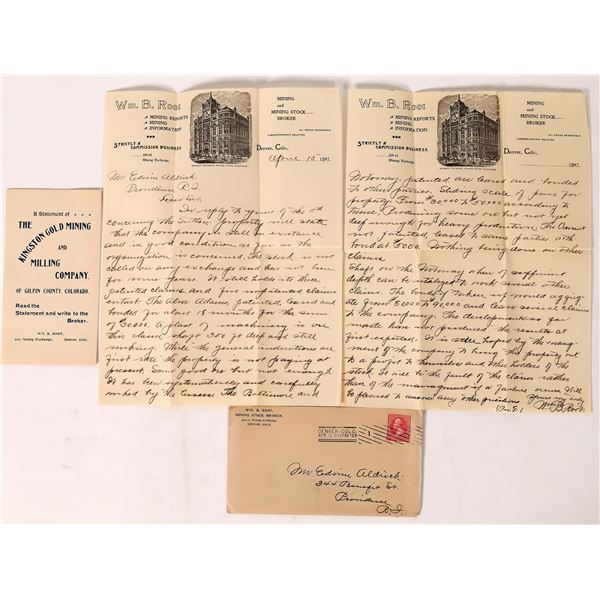 Wm. B. Root
MINING REPORTS
MINING
INFORMATION
STRICTLY A
COMMISSION BUSINESS
Mining Exchange.
MINING
and
MINING STOCK....
BROKER
Denver, Colo., April 15 1897.
Mr Edwin Aldrich
Providence R.I.
Dear Sir,
In reply to yours of the 11th
concerning the property will state
that the company is still in existance
and in good condition as far as the
organization is concerned. The stock is not
called on any exchange and has not been
for some years. It still holds its three
patented claims and five unpatented claims
intact. The Alva Adams, patented, leased and
bonded for about 18 months for the sum
of 20000. A plant of machinery is on
this claim, shaft 300 ft deep and still
sinking. While the general indications are
just now the property is not paying at
present. Some good ore but not enough
It has been systematically and carefully
worked by the lessees. The Baltimore and
Wm. B. Root
MINING REPORTS
MINING
INFORMATION
STRICTLY A
COMMISSION BUSINESS
Mining Exchange.
MINING
and
MINING STOCK....
BROKER
Denver, Colo., 1897.
patented are leased and bonded
to other parties. Sliding scale of price for
property from $30,000 to $50,000 according to
time. Producing some ore but not yet
deep enough for heavy production. The
not patented, leased to same parties with
bond at $5000. Nothing being done on other
claims.
Shaft on the when of sufficient
depth can be utilized to work several other
claims. The bonds if taken up would
from to and leave several claims
to the company. The developments so far
made have not produced the results at
first expected. It is still hoped by the
management of the company to bring this property out
to a profit to themselves and other holders of the
stock. It will be the fault of the claims rather
than of the management if a failure occurs. Will
be pleased to answer any other questions
Yours very truly
Wm B Root
A Statement of . . .
THE
KINGSTON GOLD MINING
AND
MILLING
COMPANY.
OF GILPIN COUNTY, COLORADO.
Read the
Statement and write to the
Broker.
WM. B. ROOT,
Mining Exchange, Denver, Colo.
WM. B. ROOT,
MINING STOCK BROKER,
Mining Exchange,
DENVER, COLO.
DENVER, COLO.
Mr Edwin Aldrich
344 Benefit St.
Providence
R.I.